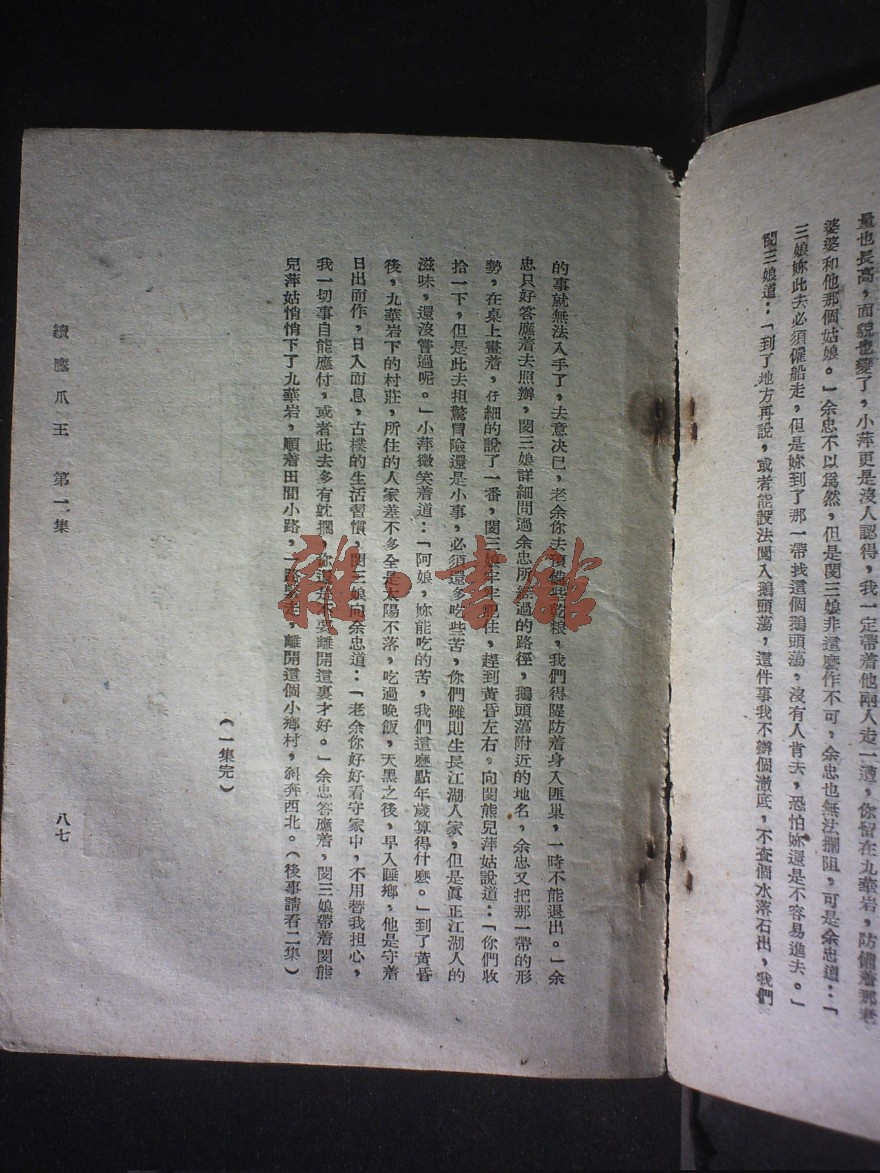 量也長高，面貌也變了，小萍更是沒人認得，我一定帶着他兩人走一遭，你留在九華岩，防備着那老
婆婆和他那個姑娘。」余忠不以爲然，但是閔三娘非這麽作不可，余忠也無法攔阻，可是余忠道：「
三娘妳此去必須僱船走，但是妳到了那一帶找這個鵝頭蕩，沒有人肯去，恐怕妳還是不容易進去。」
閔三娘道：「到了地方再說，或者能設法闖入鵝頭蕩，這件事我不辦個澈底，不查個水落石出，我們
的事就無法入手了，去意决已，老余你去預備些乾粮，我們得隄防着身入匪巢，一時不能退出。」余
忠只好答應着去照辦，閔三娘詳細問過余忠所經過的路徑，鵝頭蕩附近的地名，余忠又把那一帶的形
勢，在桌上畫着，仔細的說了一番，閔三娘牢牢記住，趕到黃昏左右。向閔熊兒萍姑說道：「你們收
拾一下，但是此去担驚冒險還是小事，必須還多吃些苦，你們雖則生長江湖人家，但是眞正江湖人的
滋味，還沒嘗過呢。」小萍微笑着道：「阿娘，妳能吃的苦，我們這麽點年歲算得什麽。」到了黃昏
後，九華岩下的村莊，所住的人家差不多全是太陽不落，吃過晚飯，天黑之後，早入睡鄉，他是守着
日出而作，日入而息，古樸的生活習慣，閔三娘向余忠道：「老余你好好看守家中，不用替我担心，
我一切事自能應付，或者此去多有躭擱，你還是不要離開這裏才好。」余忠答應着，閔三娘帶着閔熊
兒萍姑悄悄下了九華岩，順着田間小路，一路緊走，離開這個小鄉村，斜奔西北。（後事請看二集）
（一集完）
續鷹爪王　第一集
八七
雜·書館